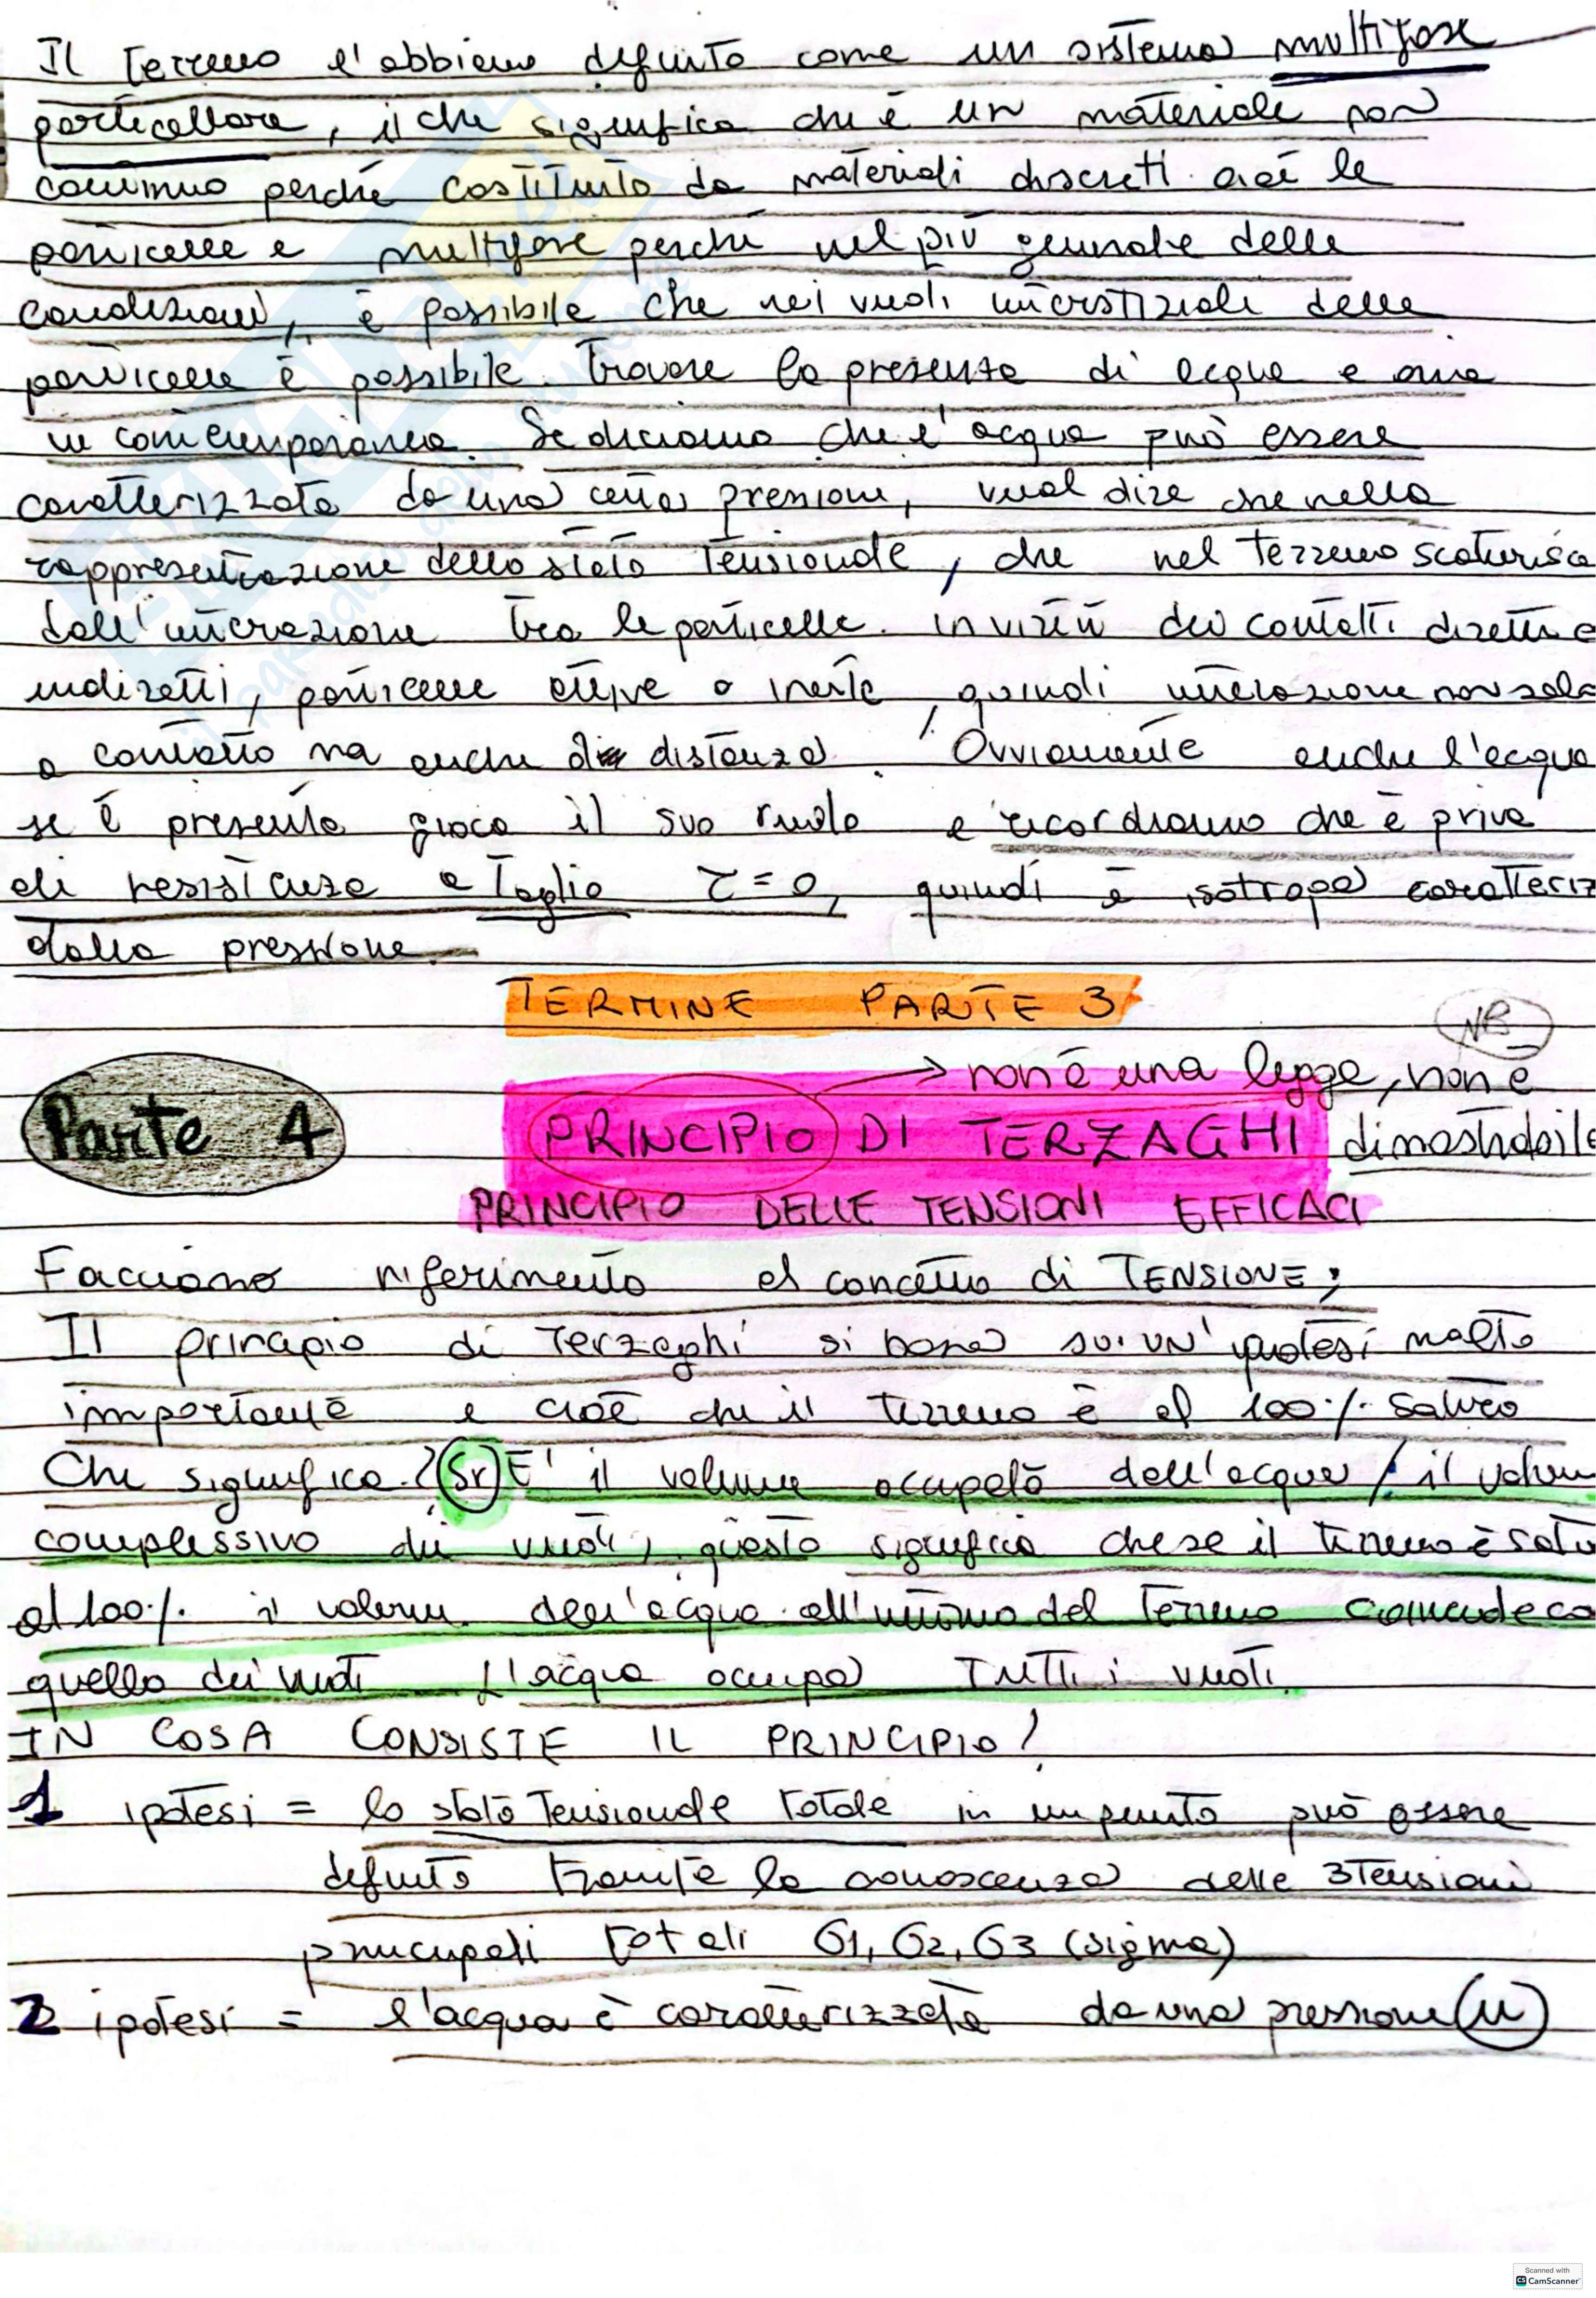 Il terreno l'abbiamo definito come un sistema multifase
particellare, il che significa che è un materiale non
continuo perché costituito da materiali discreti cioè le
particelle e multifase perché nel più generale delle
condizioni, è possibile che nei vuoti interstiziali delle
particelle è possibile trovare la presenza di acqua e aria
in contemporanea. Se diciamo che l'acqua può essere
caratterizzata da una certa pressione, vuol dire che nella
rappresentazione dello stato tensionale, che nel terreno scaturisce
dall'interazione tra le particelle in virtù dei contatti diretti e
indiretti, particelle attive o inerte, quindi interazione non solo
a contatto ma anche a distanza. Ovviamente anche l'acqua
se è presente gioca il suo ruolo e ricordiamo che è priva
di resistenza a taglio τ = 0, quindi è isotropa caratteriz
dalla pressione.
TERMINE PARTE 3
NB
→ non è una legge, non è
Parte 4 PRINCIPIO DI TERZAGHI dimostrabile
PRINCIPIO DELLE TENSIONI EFFICACI
Facciamo riferimento al concetto di TENSIONE;
Il principio di Terzaghi si basa su un'ipotesi molto
importante e cioè che il terreno è al 100% saturo
Che significa? Sr E' il volume occupato dall'acqua / il volume
complessivo dei vuoti, questo significa che se il terreno è satu
al 100% il volume dell'acqua all'interno del terreno coincide co
quello dei vuoti L'acqua occupa TUTTI i vuoti.
IN COSA CONSISTE IL PRINCIPIO?
1 ipotesi = lo stato tensionale totale in un punto può essere
definito tramite la conoscenza delle 3 tensioni
principali totali σ1, σ2, σ3 (sigma)
2 ipotesi = l'acqua è caratterizzata da una pressione (u)
Scanned with
CS CamScanner